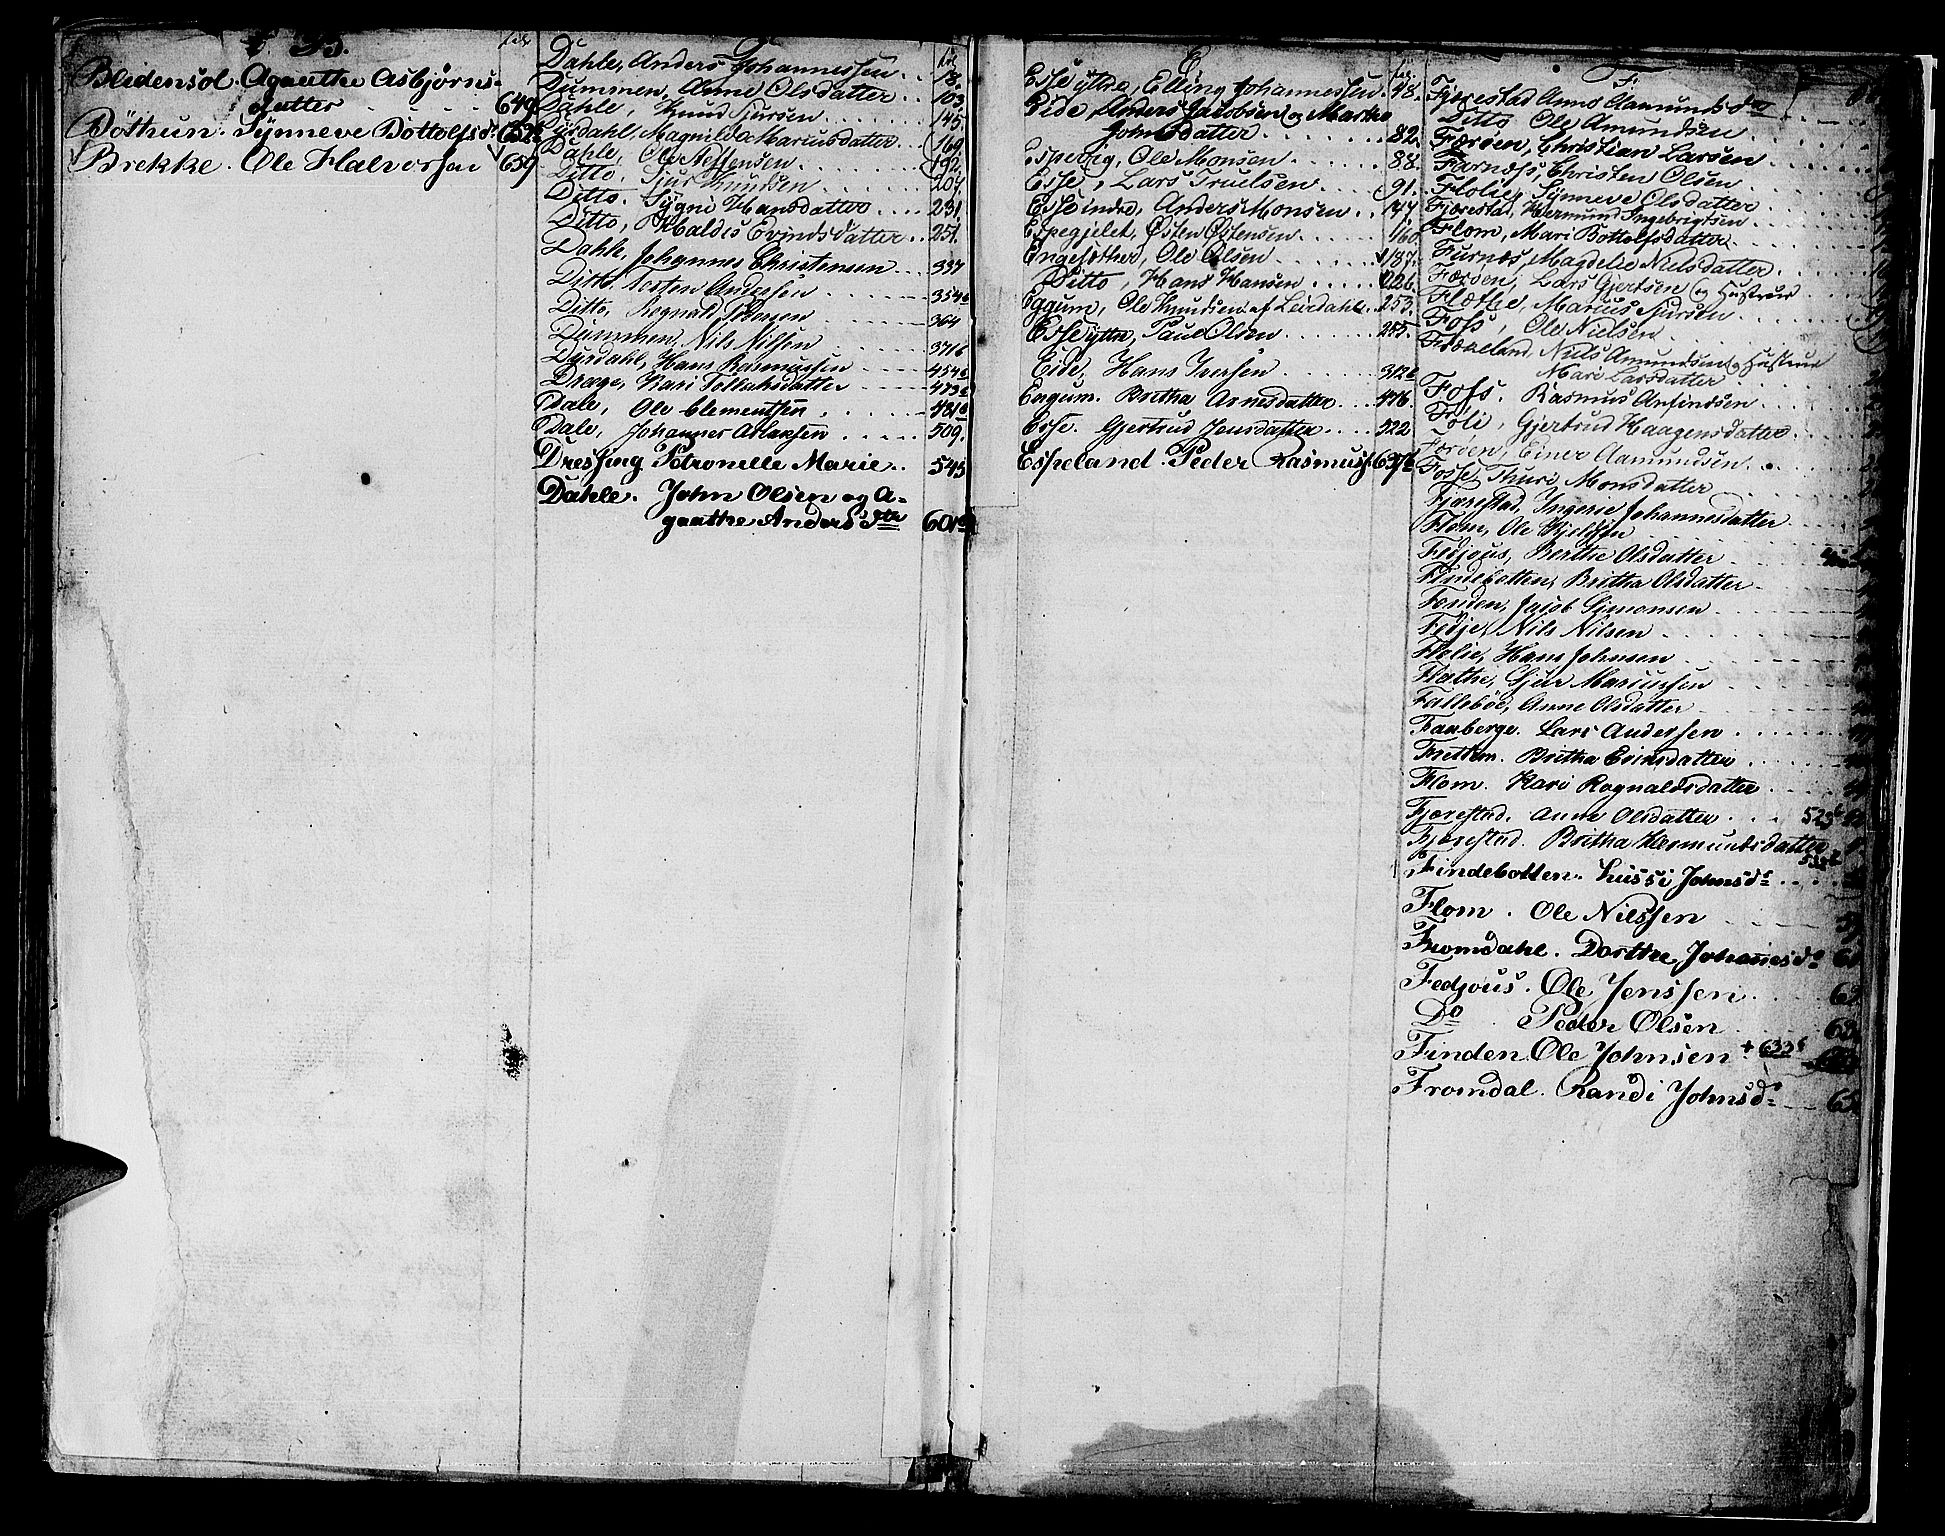 B.
fol
Blidensol. Agaathe Asbjørns-
datter 649
Bøthun. Synneve Bottolfsd. 652
Brekke. Ole Halvorsen 659
D.
fol
Dahle, Anders Johannessen 18.
Dummen, Anne Olsdatter 103.
Dahle, Knud Sjursen 145.
Dysdahl, Magnilda Mariusdatter 169.
Dahle, Ole Steffensen 192.
Ditto, Sjur Knudsen 204.
Ditto, Sygni Hansdatter 231.
Ditto, Raldis Evindsdatter 251.
Dahle, Johannes Christensen 337
Ditto, Torsten Andersen 354b
Ditto, Rognald Pedersen 364
Dummen, Nils Nilsen 371b
Dysdahl, Hans Rasmussen 454b
Drage, Kari Tollachsdatter 473b
Dale, Ole Clementsen 481b
Dale, Johannes Aslaksen 509.
Dressing Petronelle Marie 545
Dahle. John Olsen og A-
gaathe Andersdtr 601b
E
fol.
Esse yttre, Elling Johannessen 48.
Eide, Anders Jacobsen og Martha
Johnsdatter 82.
Espevig, Ole Monsen 88.
Esse, Lars Truelsen 91.
Esse indre, Anders Monsen 147.
Espegjelet, Østen Østensen 160.
Engesæther, Ole Olsen 187.
Ditto, Hans Hansen 226.
Eggum, Ole Knudsen af Leirdahl 253.
Esse yttre, Paul Olsen 255.
Eide, Hans Iversen 312b
Engum. Britha Arnesdatter 476.
Esse. Gjertrud Jensdatter 522
Espeland. Peder Rasmuss. 637b
F
Fjærestad Anna Aamundsdtr
Ditto Ole Amundsen
Færøen, Christian Larsen
Farnæss, Christen Olsen
Flolie, Synneve Olsdatter
Fjærestad, Hermund Ingebrigtsen
Flom, Mari Bottolfsdatter
Furnæs, Magdelie Nielsdatter
Færøen, Lars Gjertsen og Hustrue
Flæthe, Marius Sjursen
Foss, Ole Nielsen
Nils Amundsen og Hustrue
Mari Larsdatter
Foss. Rasmus Anfindsen
Foli, Gjertrud Haagensdatter
Færøen, Einer Aamundsen
Fosse, Thuri Monsdatter
Fjærestad, Ingerie Johannesdatter
Flom, Ole Kjelssen
Fedjous, Berthe Olsdatter
Findebotten, Britha Olsdatter
Fenden, Jacob Simonsen
Fedje, Nils Nilsen
Flolie, Hans Johnsen
Flathe, Sjur Mariussen
Falleböe, Anne Olsdatter
Faaberge. Lars Andersen
Frettem. Britha Eriksdatter
Flom. Kari Rognaldsdatter
Fjærestad. Anne Olsdatter 525b
Fjærestad. Britha Hermundsdatter
Findebotten. Lussi Johnsdr
Flom. Ole Nilssen
Fromdahl. Dorthe Johanesdr
Fedjous. Ole Jenssen
Do Peder Olsen
Finden. Ole Johnsen + 633b
Fromdal. Randi Johnsdr